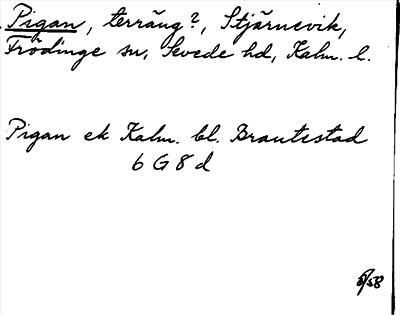 Pigan, terräng?, Stjärnevik,
Frödinge sn, Sevede hd, Kalm. l.
Pigan ek Kalm. bl. Brantestad
6 G 8 d
5/58